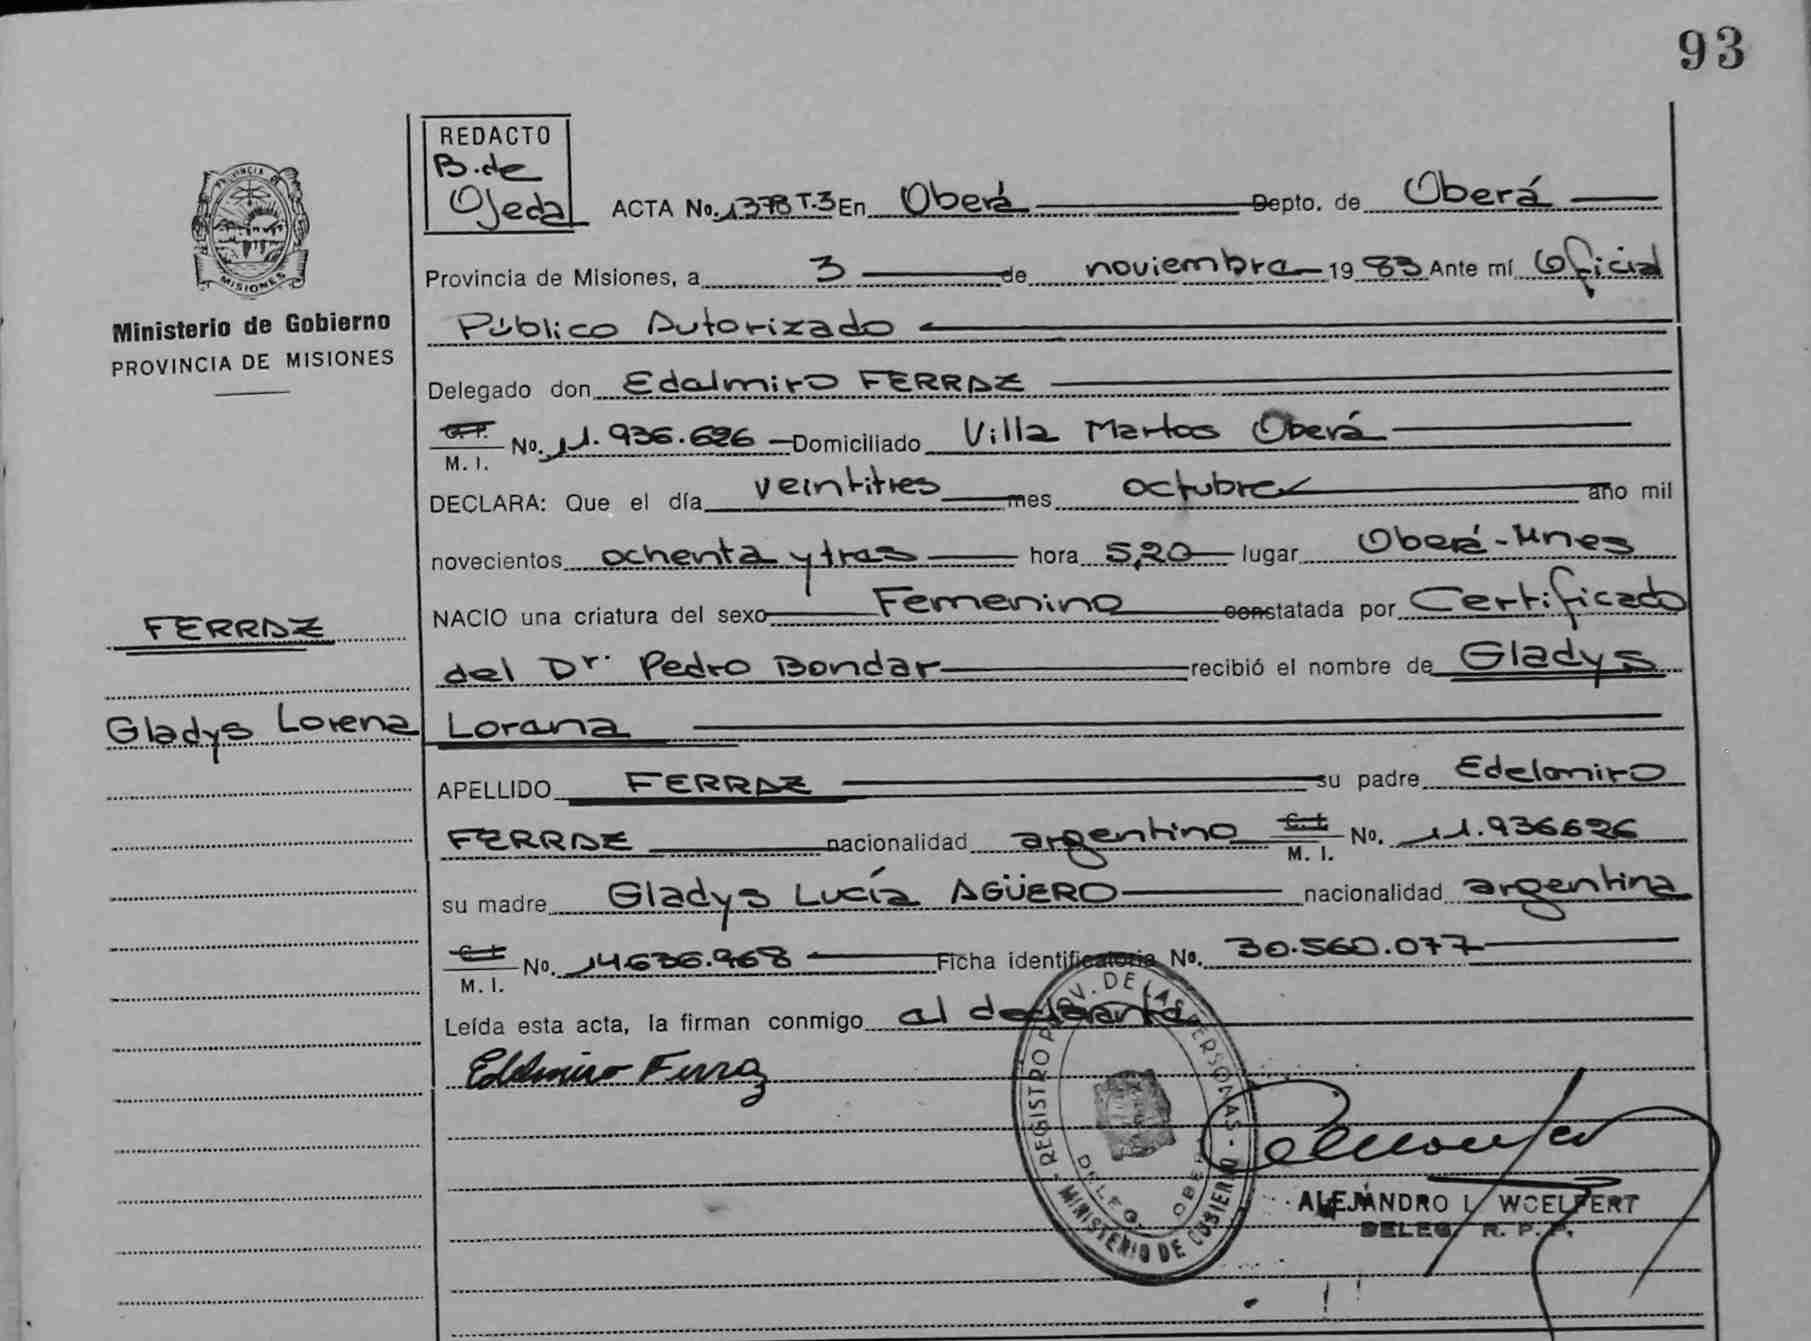 93
REDACTO
B. de
Ojeda
ACTA No. 1378 T.3 En Oberá Depto. de Oberá
Provincia de Misiones, a 3 de noviembre 19 83 Ante mí Oficial
Público Autorizado
Delegado don Edelmiro FERRAZ
C. I. No. 11.936.626 Domiciliado Villa Martos Oberá
M. I.
DECLARA: Que el día veintitres mes octubre año mil
novecientos ochenta y tres hora 5,20 lugar Oberá-Mnes
NACIO una criatura del sexo Femenino constatada por Certificado
del Dr. Pedro Bondar recibió el nombre de Gladys
Lorena
APELLIDO FERRAZ su padre Edelmiro
FERRAZ nacionalidad argentino C. I. No. 11.936626
M. I.
su madre Gladys Lucía AGÜERO nacionalidad argentina
C. I. No. 14.636.968 Ficha identificatoria No. 30.560.077
M. I.
Leída esta acta, la firman conmigo el declarante
Edelmiro Ferraz
PROVINCIA DE
MISIONES
Ministerio de Gobierno
PROVINCIA DE MISIONES
FERRAZ
Gladys Lorena
REGISTRO PROV. DE LAS PERSONAS - MINISTERIO DE GOBIERNO
DELEG. OBERÁ
ALEJANDRO L. WOELFERT
DELEG. R. P. P.